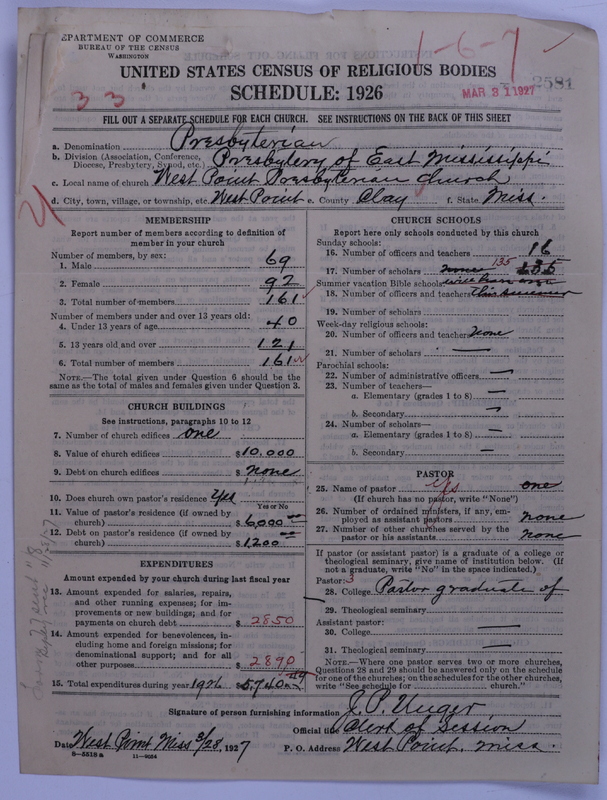 DEPARTMENT OF COMMERCE
BUREAU OF THE CENSUS
WASHINGTON
1-6-7
UNITED STATES CENSUS OF RELIGIOUS BODIES
2581
33
SCHEDULE: 1926
MAR 31 1927
FILL OUT A SEPARATE SCHEDULE FOR EACH CHURCH. SEE INSTRUCTIONS ON THE BACK OF THIS SHEET
a. Denomination Presbyterian
b. Division (Association, Conference, Diocese, Presbytery, Synod, etc.) Presbytery of East Mississippi
c. Local name of church West Point Presbyterian Church
d. City, town, village, or township, etc. West Point e. County Clay f. State Miss.
MEMBERSHIP
Report number of members according to definition of
member in your church
Number of members, by sex:
1. Male 69
2. Female 92
3. Total number of members 161
Number of members under and over 13 years old:
4. Under 13 years of age 40
5. 13 years old and over 121
6. Total number of members 161
NOTE.—The total given under Question 6 should be the
same as the total of males and females given under Question 3.
CHURCH BUILDINGS
See instructions, paragraphs 10 to 12
7. Number of church edifices one
8. Value of church edifices $10,000
9. Debt on church edifices $ None
10. Does church own pastor's residence Yes
Yes or No
11. Value of pastor's residence (if owned by
church) $6,000
12. Debt on pastor's residence (if owned by
church) $1,200
EXPENDITURES
Amount expended by your church during last fiscal year
13. Amount expended for salaries, repairs,
and other running expenses; for im-
provements or new buildings; and for
payments on church debt $ 2850
14. Amount expended for benevolences, in-
cluding home and foreign missions; for
denominational support; and for all
other purposes $ 2890
15. Total expenditures during year 1926 $5,740
CHURCH SCHOOLS
Report here only schools conducted by this church
Sunday schools:
16. Number of officers and teachers 16
17. Number of scholars none 135
Summer vacation Bible schools:
18. Number of officers and teachers this summer
19. Number of scholars
Week-day religious schools:
20. Number of officers and teachers None
21. Number of scholars —
Parochial schools:
22. Number of administrative officers —
23. Number of teachers—
a. Elementary (grades 1 to 8) —
b. Secondary —
24. Number of scholars—
a. Elementary (grades 1 to 8) —
b. Secondary —
PASTOR
25. Name of pastor Yes one
(If church has no pastor, write "None")
26. Number of ordained ministers, if any, em-
ployed as assistant pastors none
27. Number of other churches served by the
pastor or his assistants none
If pastor (or assistant pastor) is a graduate of a college or
theological seminary, give name of institution below. (If
not a graduate, write "No" in the space indicated.)
Pastor: 3
28. College Pastor graduate of
29. Theological seminary
Assistant pastor:
30. College —
31. Theological seminary —
NOTE.—Where one pastor serves two or more churches,
Questions 28 and 29 should be answered only on the schedule
for one of the churches; on the schedules for the other churches,
write "See schedule for church."
Signature of person furnishing information J. P. Unger
Official title Clerk of Session
Date West Point Miss 3/28, 1927 P. O. Address West Point, Miss.
8-5518a 11-9654